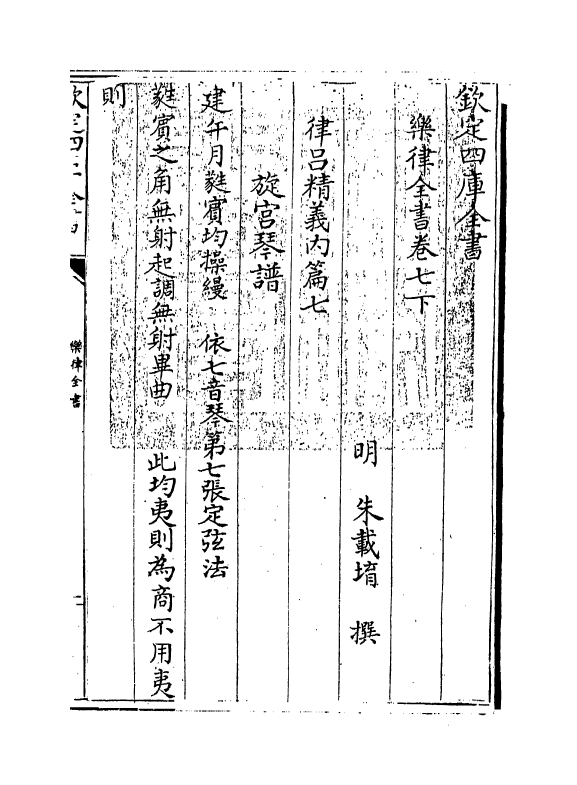 欽定四庫全書
樂律全書卷七下
明 朱載堉 撰
律呂精義內篇七
旋宫琴譜
建午月蕤賓均操縵 依七音琴第七張定弦法
蕤賓之角無射起調無射畢曲 此均夷則為商不用夷
則
樂律全書